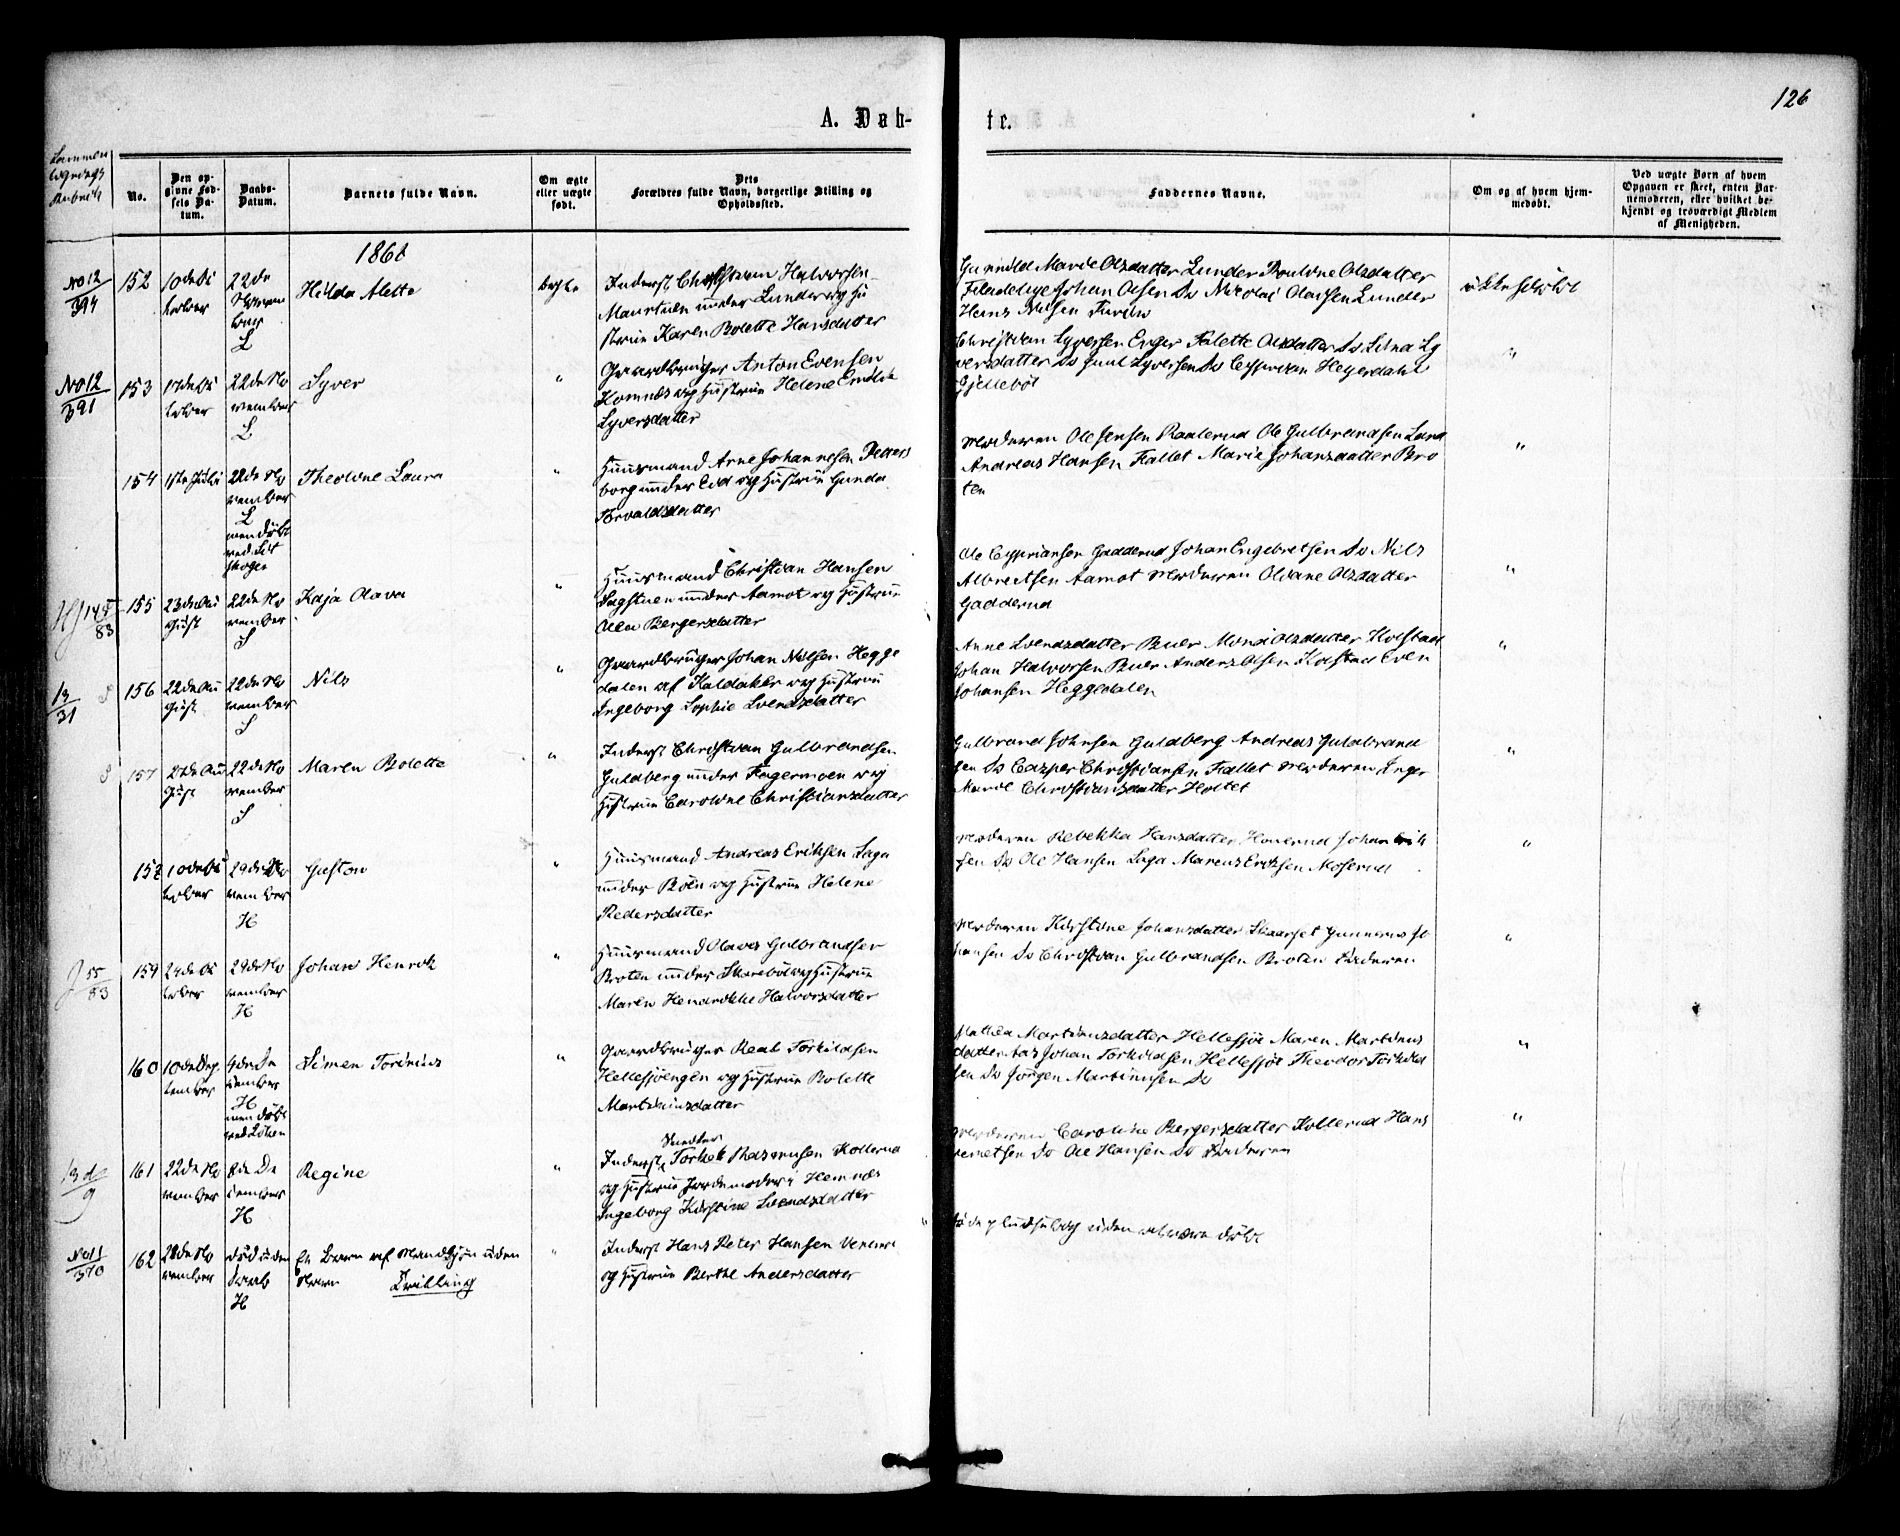 126
A. Døb-
te.
Sammen
lignings
Rubrik
No.
Den op-
givne Fød-
sels Da-
tum.
Daabs-
Datum.
Barnets fulde Navn.
Om ægte
eller uægte
født.
Dets
Forældres fulde Navn, borgerlige Stilling og
Opholdssted.
Faddernes Navne.
Om og af hvem hjem-
medøbt.
Ved uægte Børn af hvem
Opgaven er skeet, enten Bar-
nemoderen, eller hvilket be-
kjendt og troværdigt Medlem
af Menigheden.
No 12
394
152
10de Oc
tober
22de
Novem
ber
L
Hilda Alette
ægte
Inderst Christian Halvorsen
under Lunder og Hu
strue Karen Bolette Hansdatter
Gunnild Marie Olsdatter Lunder Pauline Olsdatter
Johan Olsen Do Nicolai Olausen Lunder
Hans Nilsen
ikke hdøbt
No 12
391
153
17de Oc
tober
22de No
vember
L
Syver
"
Gaardbruger Anton Evensen
Komnæs og Hustrue Helene Emilie
Syversdatter
Christian Syversen Enger Olsdatter Do Lina Sy
versdatter Do Syversen Do Cyprian Heyerdahl
Gjellebøl
154
22de No
vember
L
men døbt
ved Set
skogen
Theoline Laura
"
Huusmand Arne Johannesen Petters
borg under Eid og Hustrue Gunda
Torvaldsdatter
Moderen Ole Jensen Raalerud Ole Gulbrandsen Lund
Andreas Hansen Fallet Marie Johansdatter Bro
ten
"
155
23de Au
gust
22de No
vember
S
Kaja Olava
"
Huusmand Christian Hansen
Sagstuen under Aamot og Hustrue
Olea Bergersdatter
Ole Cypriansen Gadderud Johan Engebretsen Do Nils
Albrektsen Aamot Moderen Oleane Olsdatter
Gadderud
"
13
31
156
22de Au
gust
22de No
vember
S
Nils
"
Gaardbruger Johan Nilsen Hegge
dalen af Kaldaker og Hustrue
Ingeborg Sophie Svendsdatter
Anne Svendsdatter Buer Olsdatter Kolstad
Johan Halvorsen Buer Anders Olsen Kolstad Even
Johansen Heggedalen
"
157
27de Au
gust
22de No
vember
S
Maren Bolette
"
Inderst Christian Gulbrandsen
Guldberg under Fagermoen og
Hustrue Caroline Christiansdatter
Gulbrand Johnsen Guldberg Andreas Gulbrand
sen Do Casper Christiansen Fallet Moderen Inger
Marie Christiansdatter Holtet
"
158
10de Oc
tober
29de No
vember
H
Gustav
"
Huusmand Andreas Eriksen Saga
under Bøen og Hustrue Helene
Pedersdatter
Moderen Rebekka Hansdatter Johan Erik
sen Do Ole Hansen Saga Marcus Eriksen Moserud
"
55
83
159
24de Oc
tober
29de No
vember
H
Johan Henrik
"
Huusmand Olaves Gulbrandsen
Broten under Skarebøl og Hustrue
Maren Hendrikke Halvorsdatter
Moderen Kirstine Johansdatter Gunnerus Jo
hansen Do Christian Gulbrandsen Broten Faderen
"
160
10de Sep
tember
4de De
cember
H
men døbt
Simen Torinius
"
Gaardbruger Torkildsen
Hellesjøengen og Hustrue Bolette
Martiniusdatter
Mathea Martinusdatter Hellesjøe Maren Martinus
datter Do Johan Torkildsen Hellesjøe Theodor Torkild
sen Do Jørgen Martinusen Do
"
9
161
22de No
vember
8de De
cember
H
Regine
"
Snedker
Inderst Kollerud
og Hustrue Jordemoder i Hemnæs
Ingeborg Kirstine Svendsdatter
Moderen Caroline Bergersdatter Kollerud Hans
Do Ole Hansen Do Faderen
"
No 11
370
162
28de No
vember
død uden
Daab
H
Et Barn af Mandkjøn uden
Navn Tvilling
"
Inderst Hans Peter Hansen
og Hustrue Berthe Andersdatter
døde pludselig uden at være døbt